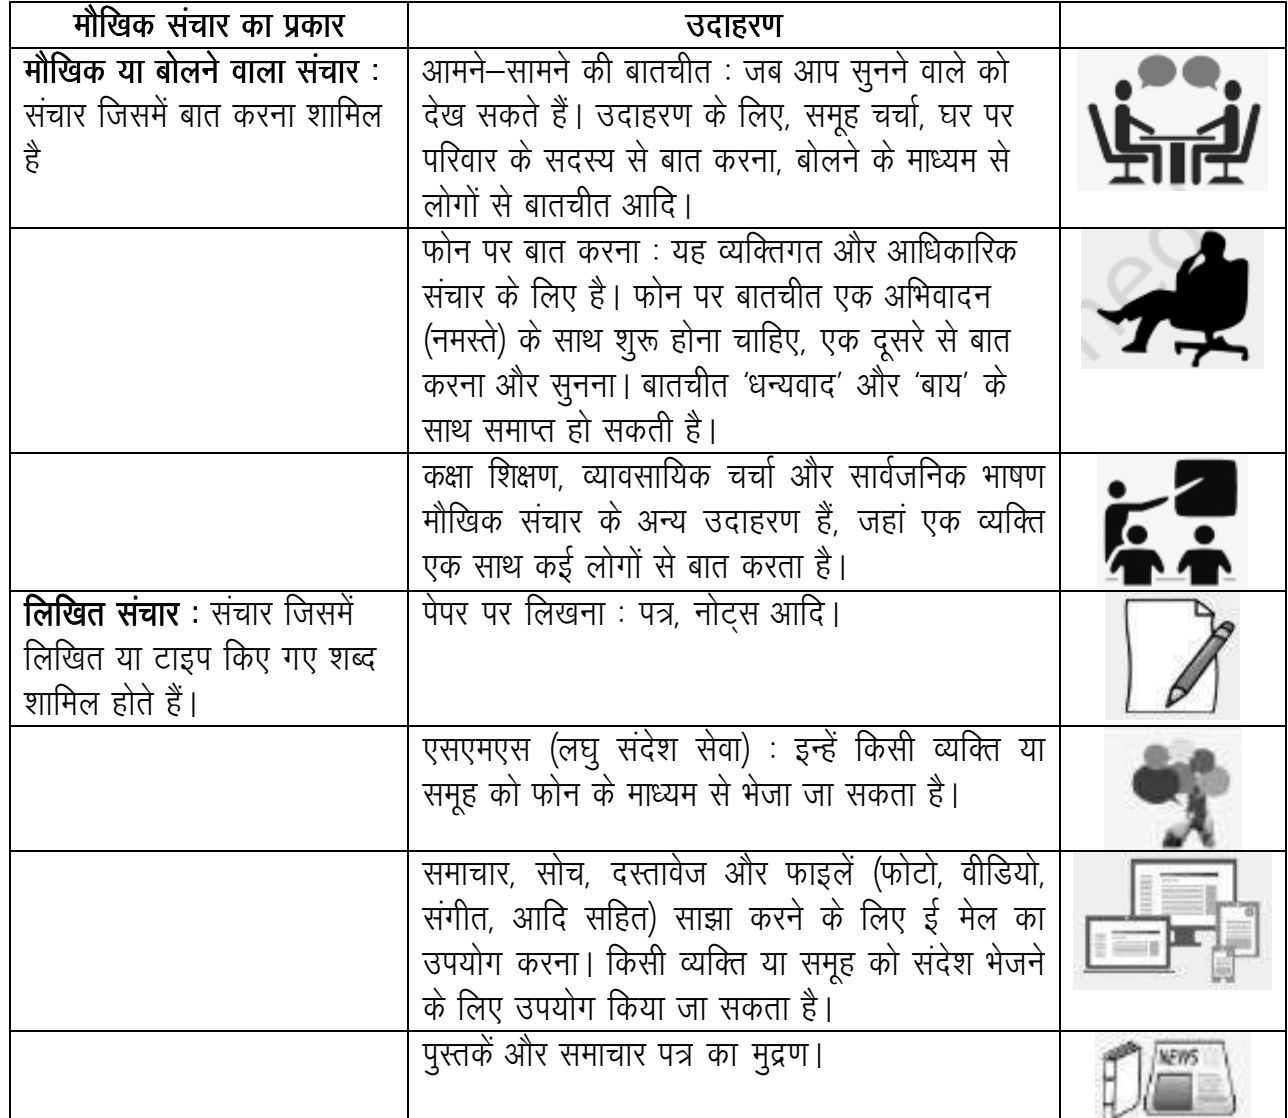 मौखिक संचार का प्रकार
उदाहरण
मौखिक या बोलने वाला संचार :
संचार जिसमें बात करना शामिल
है
आमने–सामने की बातचीत : जब आप सुनने वाले को
देख सकते हैं। उदाहरण के लिए, समूह चर्चा, घर पर
परिवार के सदस्य से बात करना, बोलने के माध्यम से
लोगों से बातचीत आदि।
फोन पर बात करना : यह व्यक्तिगत और आधिकारिक
संचार के लिए है। फोन पर बातचीत एक अभिवादन
(नमस्ते) के साथ शुरू होना चाहिए, एक दूसरे से बात
करना और सुनना। बातचीत ‘धन्यवाद’ और ‘बाय’ के
साथ समाप्त हो सकती है।
कक्षा शिक्षण, व्यावसायिक चर्चा और सार्वजनिक भाषण
मौखिक संचार के अन्य उदाहरण हैं, जहां एक व्यक्ति
एक साथ कई लोगों से बात करता है।
लिखित संचार : संचार जिसमें
लिखित या टाइप किए गए शब्द
शामिल होते हैं।
पेपर पर लिखना : पत्र, नोट्स आदि।
एसएमएस (लघु संदेश सेवा) : इन्हें किसी व्यक्ति या
समूह को फोन के माध्यम से भेजा जा सकता है।
समाचार, सोच, दस्तावेज और फाइलें (फोटो, वीडियो,
संगीत, आदि सहित) साझा करने के लिए ई मेल का
उपयोग करना। किसी व्यक्ति या समूह को संदेश भेजने
के लिए उपयोग किया जा सकता है।
पुस्तकें और समाचार पत्र का मुद्रण।
NEWS